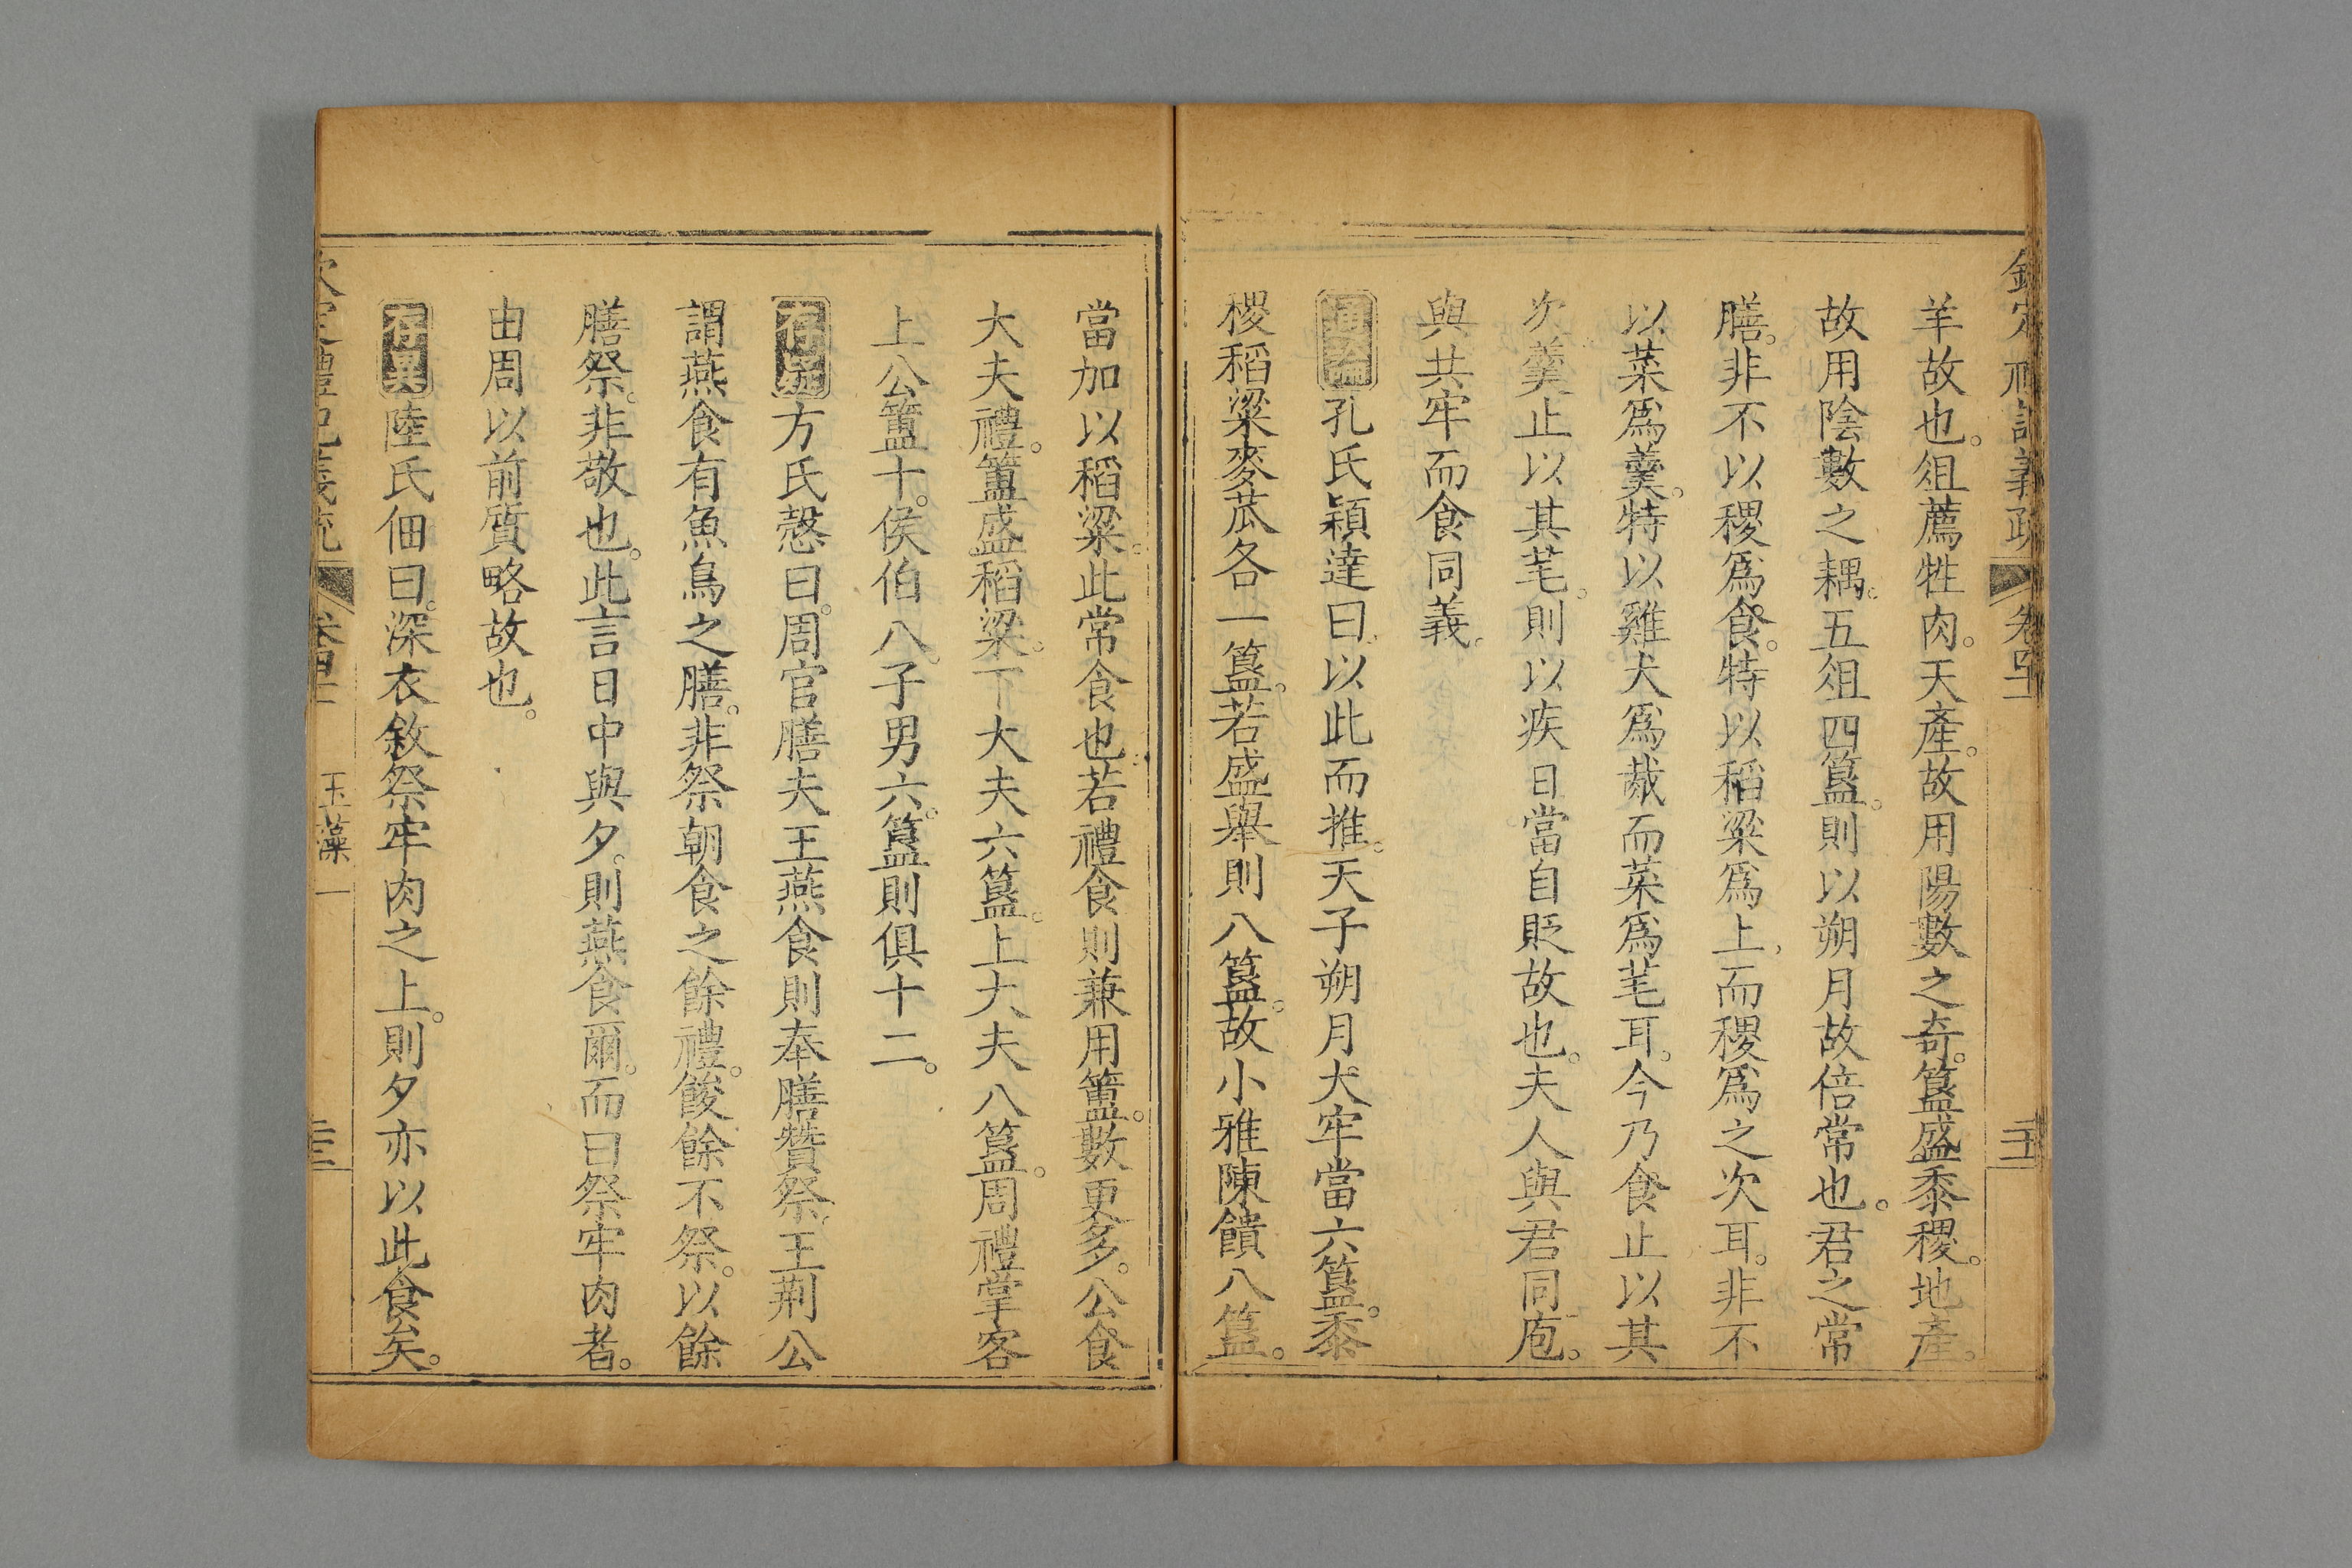 欽定禮記義疏 卷四十一 二十
羊故也。俎薦牲肉。天產。故用陽數之奇。簋盛黍稷。地產。
故用陰數之耦。五俎四簋。則以朔月故倍常也。君之常
膳。非不以稷爲食。特以稻粱爲上。而稷爲之次耳。非不
以菜爲羹。特以雞犬爲胾而菜爲芼耳。今乃食止以其
次羹止以其芼。則以疾日當自貶故也。夫人與君同庖。
與共牢而食同義。
通論孔氏穎達曰。以此而推。天子朔月大牢當六簋。黍
稷稻粱麥苽各一簋。若盛舉則八簋。故小雅陳饋八簋。
當加以稻粱。此常食也。若禮食則兼用簠。數更多。公食
大夫禮。簠盛稻粱。下大夫六簋。上大夫八簋。周禮掌客
上公簠十。侯伯八。子男六。簋則俱十二。
存疑方氏慤曰。周官膳夫王燕食則奉膳贊祭。王荆公
謂燕食有魚鳥之膳。非祭朝食之餘禮。餕餘不祭。以餘
膳祭。非敬也。此言日中與夕。則燕食爾。而曰祭牢肉者。
由周以前質略故也。
存異陸氏佃曰。深衣敘祭牢肉之上。則夕亦以此食矣。
欽定禮記義疏 玉藻一